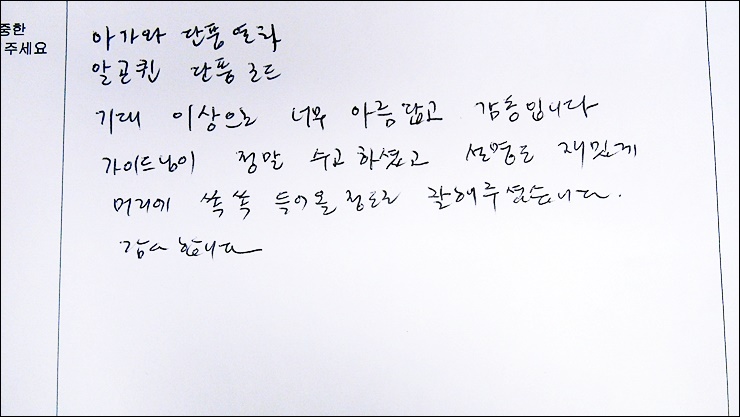 중한
주세요
아가와 단풍열차
알곤퀸 단풍 로드
기대 이상으로 너무 아름답고 감동입니다
가이드님이 정말 수고하셨고 설명도 재밌게
머리에 쏙쏙 들어올 정도로 잘해주셨습니다.
감사합니다